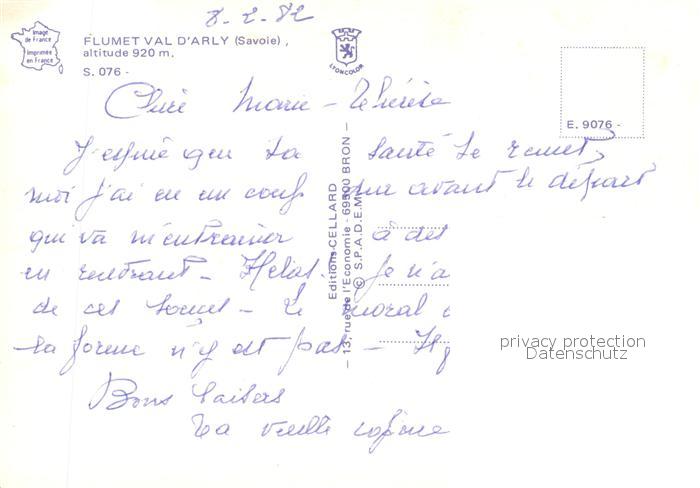 8.2.82
Image
de France
Imprimée
en France
FLUMET VAL D'ARLY (Savoie) ,
altitude 920 m.
S. 076 -
LYONCOLOR
E. 9076 -
Chère Marie-Thérèse
J'espère que ta santé se remet,
moi j'ai eu un coup dur avant le départ
qui va m'entrainer à des
en rentrant - Hélas. je n'a
de ces Le moral
la forme n'y est pas -
Bons baisers
Ta vieille copine
Editions CELLARD
- 13, rue de l'Economie - 69500 BRON -
© S.P.A.D.E.M.
privacy protection
Datenschutz